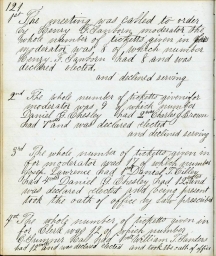 121
1st The meeting was called to order
by Henry F. Sanborn moderator. The
whole number of ticketts given in for
moderator was, 8 of which number
Henry F. Sanborn had 8 and was
declared elected.
and declined serving
2nd The whole number of ticketts given in for
moderator was, 9 of which number
Daniel G. Chesley had 2 Charley Brown
had 7 and was declared elected
and declined serving
3rd The whole number of ticketts given in
for moderator was 17 of which number
Hugh Lawrence had 1 Daniel
had Daniel G. Chesley had
was declared elected and being present
took the oath of office by law prescribed
4th The whole number of ticketts given in
for Clerk was of which number
C. Sumner had William Sanders
had 12 and was declared elected and took the oath of office